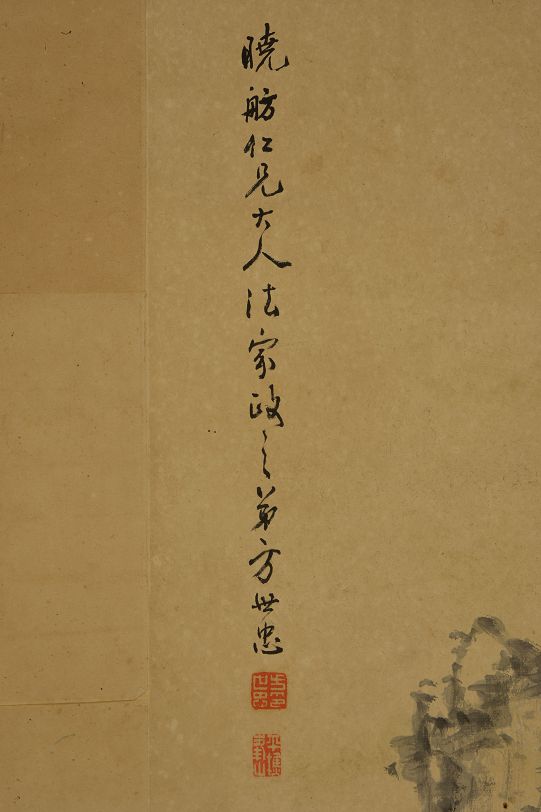 曉舫仁兄大人法家政之弟方世忠